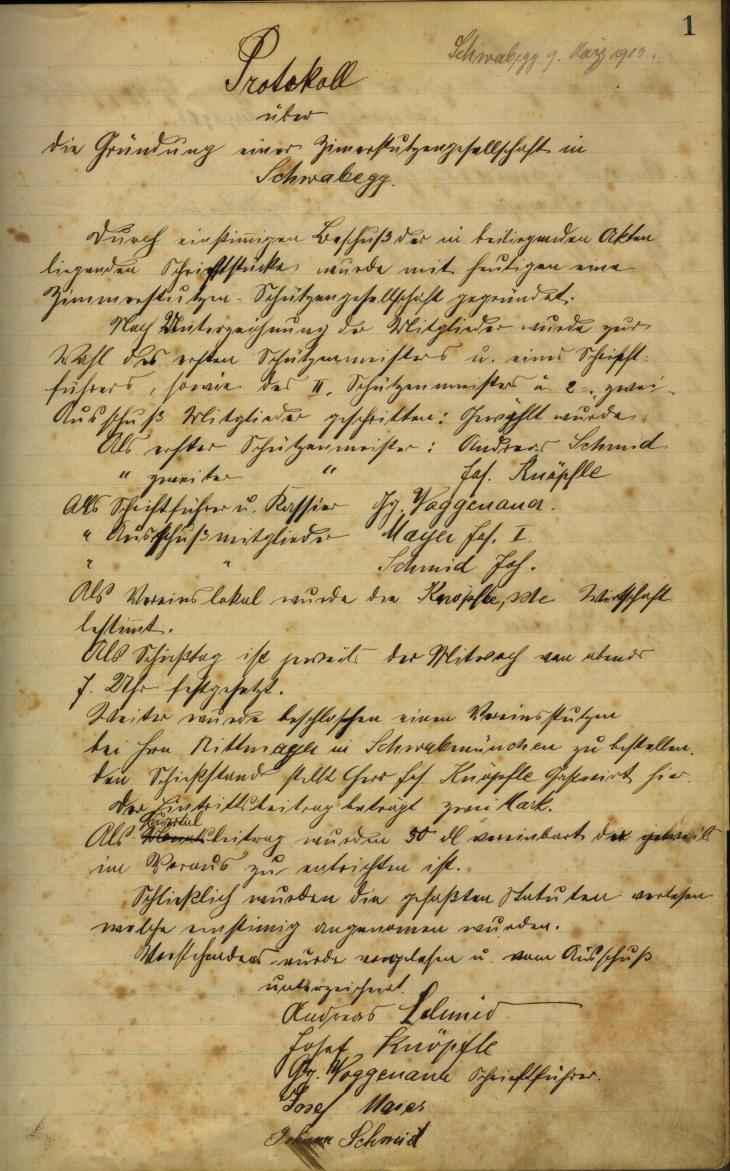 1
Schwabegg 9. März 1913.
Protokoll
über
die Gründung einer Zimerstutzengesellschaft in
Schwabegg.
Durch einstimigen Beschluß der in beiliegenden Akten
liegenden Schriftstücke wurde mit heutigen eine
Zimmerstutzen-Schützengesellschaft gegründet.
Nach Unterzeichnung der Mitglieder wurde zur
Wahl des ersten Schützenmeisters u. eines Schrift-
führers, sowie des II. Schützenmeisters u. 2 zwei
Ausschuß Mitglieder geschritten: Gewählt wurde
Als erster Schützenmeister: Andreas Schmid
" zweiter " Jos. Knöpfle
Als Schriftführer u. Kassier Gg. Voggenauer.
" Ausschußmitglieder Mayer Jos. I
" " Schmid Joh.
Als Vereinslokal wurde die Knöpfle'sche Wirtschaft
bestimt.
Als Schießtag ist jeweils der Mitwoch von abends
7. Uhr festgesetzt.
Weiter wurde beschlossen einen Vereinsstutzen
bei Hrn Rittmayer in Schwabmünchen zu bestellen.
den Schießstand stellt Herr Jos. Knöpfle Gastwirt hier.
Der Eintrittsbeitrag beträgt zwei Mark.
Quartal
Als Monatsbeitrag wurden 50 dl vereinbart der jeweils
im Voraus zu entrichten ist.
Schließlich wurden die gefaßten Statuten verlesen
welche einstimig angenomen wurden.
Vorstehendes wurde vorgelesen u. vom Ausschuß
unterzeichnet.
Andreas Schmid
Josef Knöpfle
Gg. Voggenauer Schriftführer.
Josef Maier
Johann Schmid